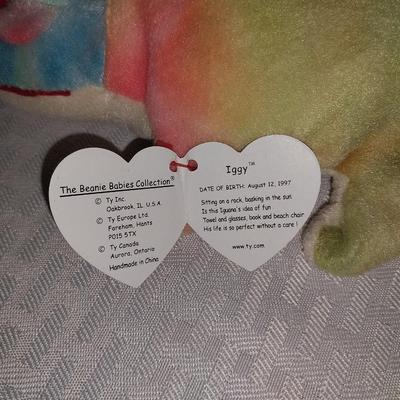 The Beanie Babies Collection®
© Ty Inc.
Oakbrook, IL. U.S.A.
© Ty Europe Ltd.
Fareham, Hants
PO15 5TX
© Ty Canada
Aurora, Ontario
Handmade in China
Iggy™
DATE OF BIRTH: August 12, 1997
Sitting on a rock, basking in the sun
Is this Iguana's idea of fun
Towel and glasses, book and beach chair
His life is so perfect without a care !
www.ty.com